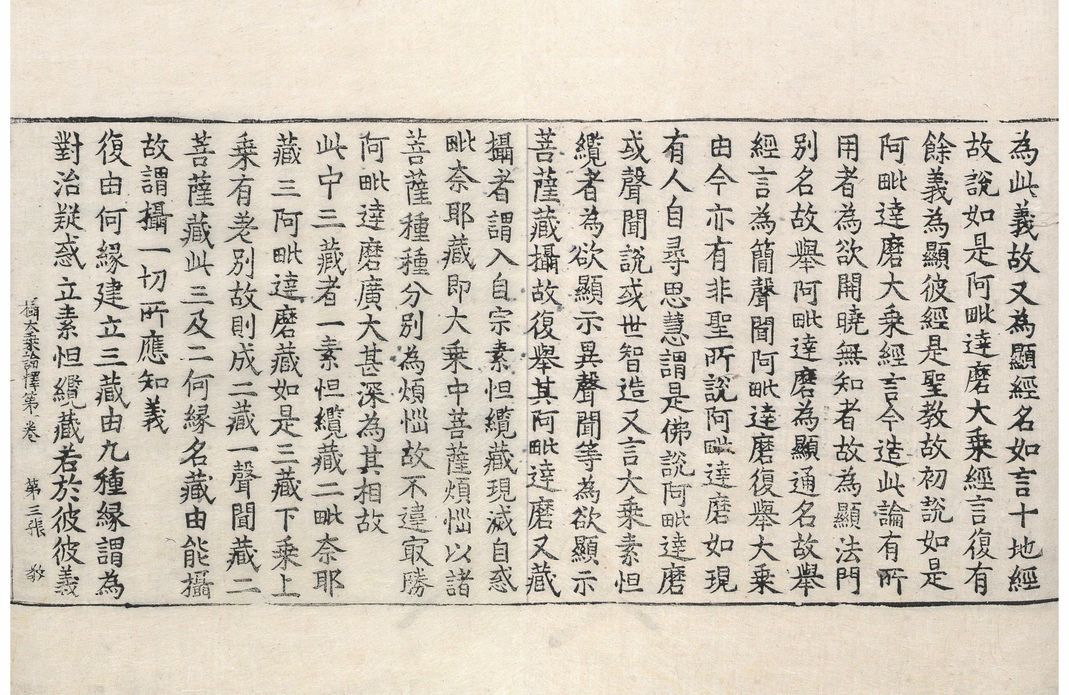 為此義故又為顯經名如言十地經
故說如是阿毗達磨大乘經言復有
餘義為顯彼經是聖教故初說如是
阿毗達磨大乘經言今造此論有所
用者為欲開曉無知者故為顯法門
別名故舉阿毗達磨為顯通名故舉
經言為簡聲聞阿毗達磨復舉大乘
由今亦有非聖所說阿毗達磨如現
有人自尋思慧謂是佛說阿毗達磨
或聲聞說或世智造又言大乘素怛
纜者為欲顯示異聲聞等為欲顯示
菩薩藏攝故復舉其阿毗達磨又藏
攝者謂入自宗素怛纜藏現滅自惑
毗奈耶藏即大乘中菩薩煩惱以諸
菩薩種種分別為煩惱故不違㝡勝
阿毗達磨廣大甚深為其相故
此中三藏者一素怛纜藏二毗奈耶
藏三阿毗達磨藏如是三藏下乘上
乘有差別故則成二藏一聲聞藏二
菩薩藏此三及二何緣名藏由能攝
故謂攝一切所應知義
復由何緣建立三藏由九種緣謂為
對治疑惑立素怛纜藏若於彼彼義
攝大乘論釋第一卷 第三張